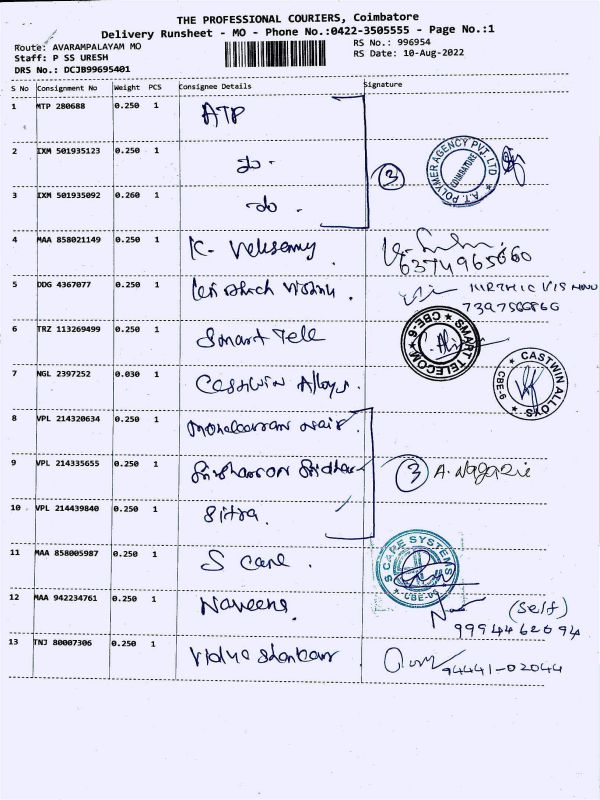 THE PROFESSIONAL COURIERS, Coimbatore
Delivery Runsheet - MO - Phone No.:0422-3505555 - Page No.:1
Route: AVARAMPALAYAM MO
RS No.: 996954
Staff: P SS URESH
RS Date: 10-Aug-2022
DRS No.: DCJB99695401
S No Consignment No Weight PCS Consignee Details Signature
1 MTP 280688 0.250 1 ATP
2 IXM 501935123 0.250 1 do -
3 IXM 501935092 0.260 1 do .
3
A.T. POLYMER AGENCY PVT. LTD ★ COIMBATORE
4 MAA 858021149 0.250 1 K. Velusamy
6374965660
5 DDG 4367077 0.250 1
7397566860
6 TRZ 113269499 0.250 1 Smart Tele
SMART TELECOM ★ CBE-6 ★
7 NGL 2397252 0.030 1 Casswin Alloys.
★ CASTWIN ALLOYS ★ CBE-6
8 VPL 214320634 0.250 1 Nair
9 VPL 214335655 0.250 1 Sridhar
3 A.
10 VPL 214439840 0.250 1 Sitra.
11 MAA 858005987 0.250 1 S Cape .
S CAPE SYSTEMS ★ CBE-06 ★
12 MAA 942234761 0.250 1 Naveena.
(Self)
9994462694
13 TNJ 80007306 0.250 1 Vidya Shankar
94441-02044